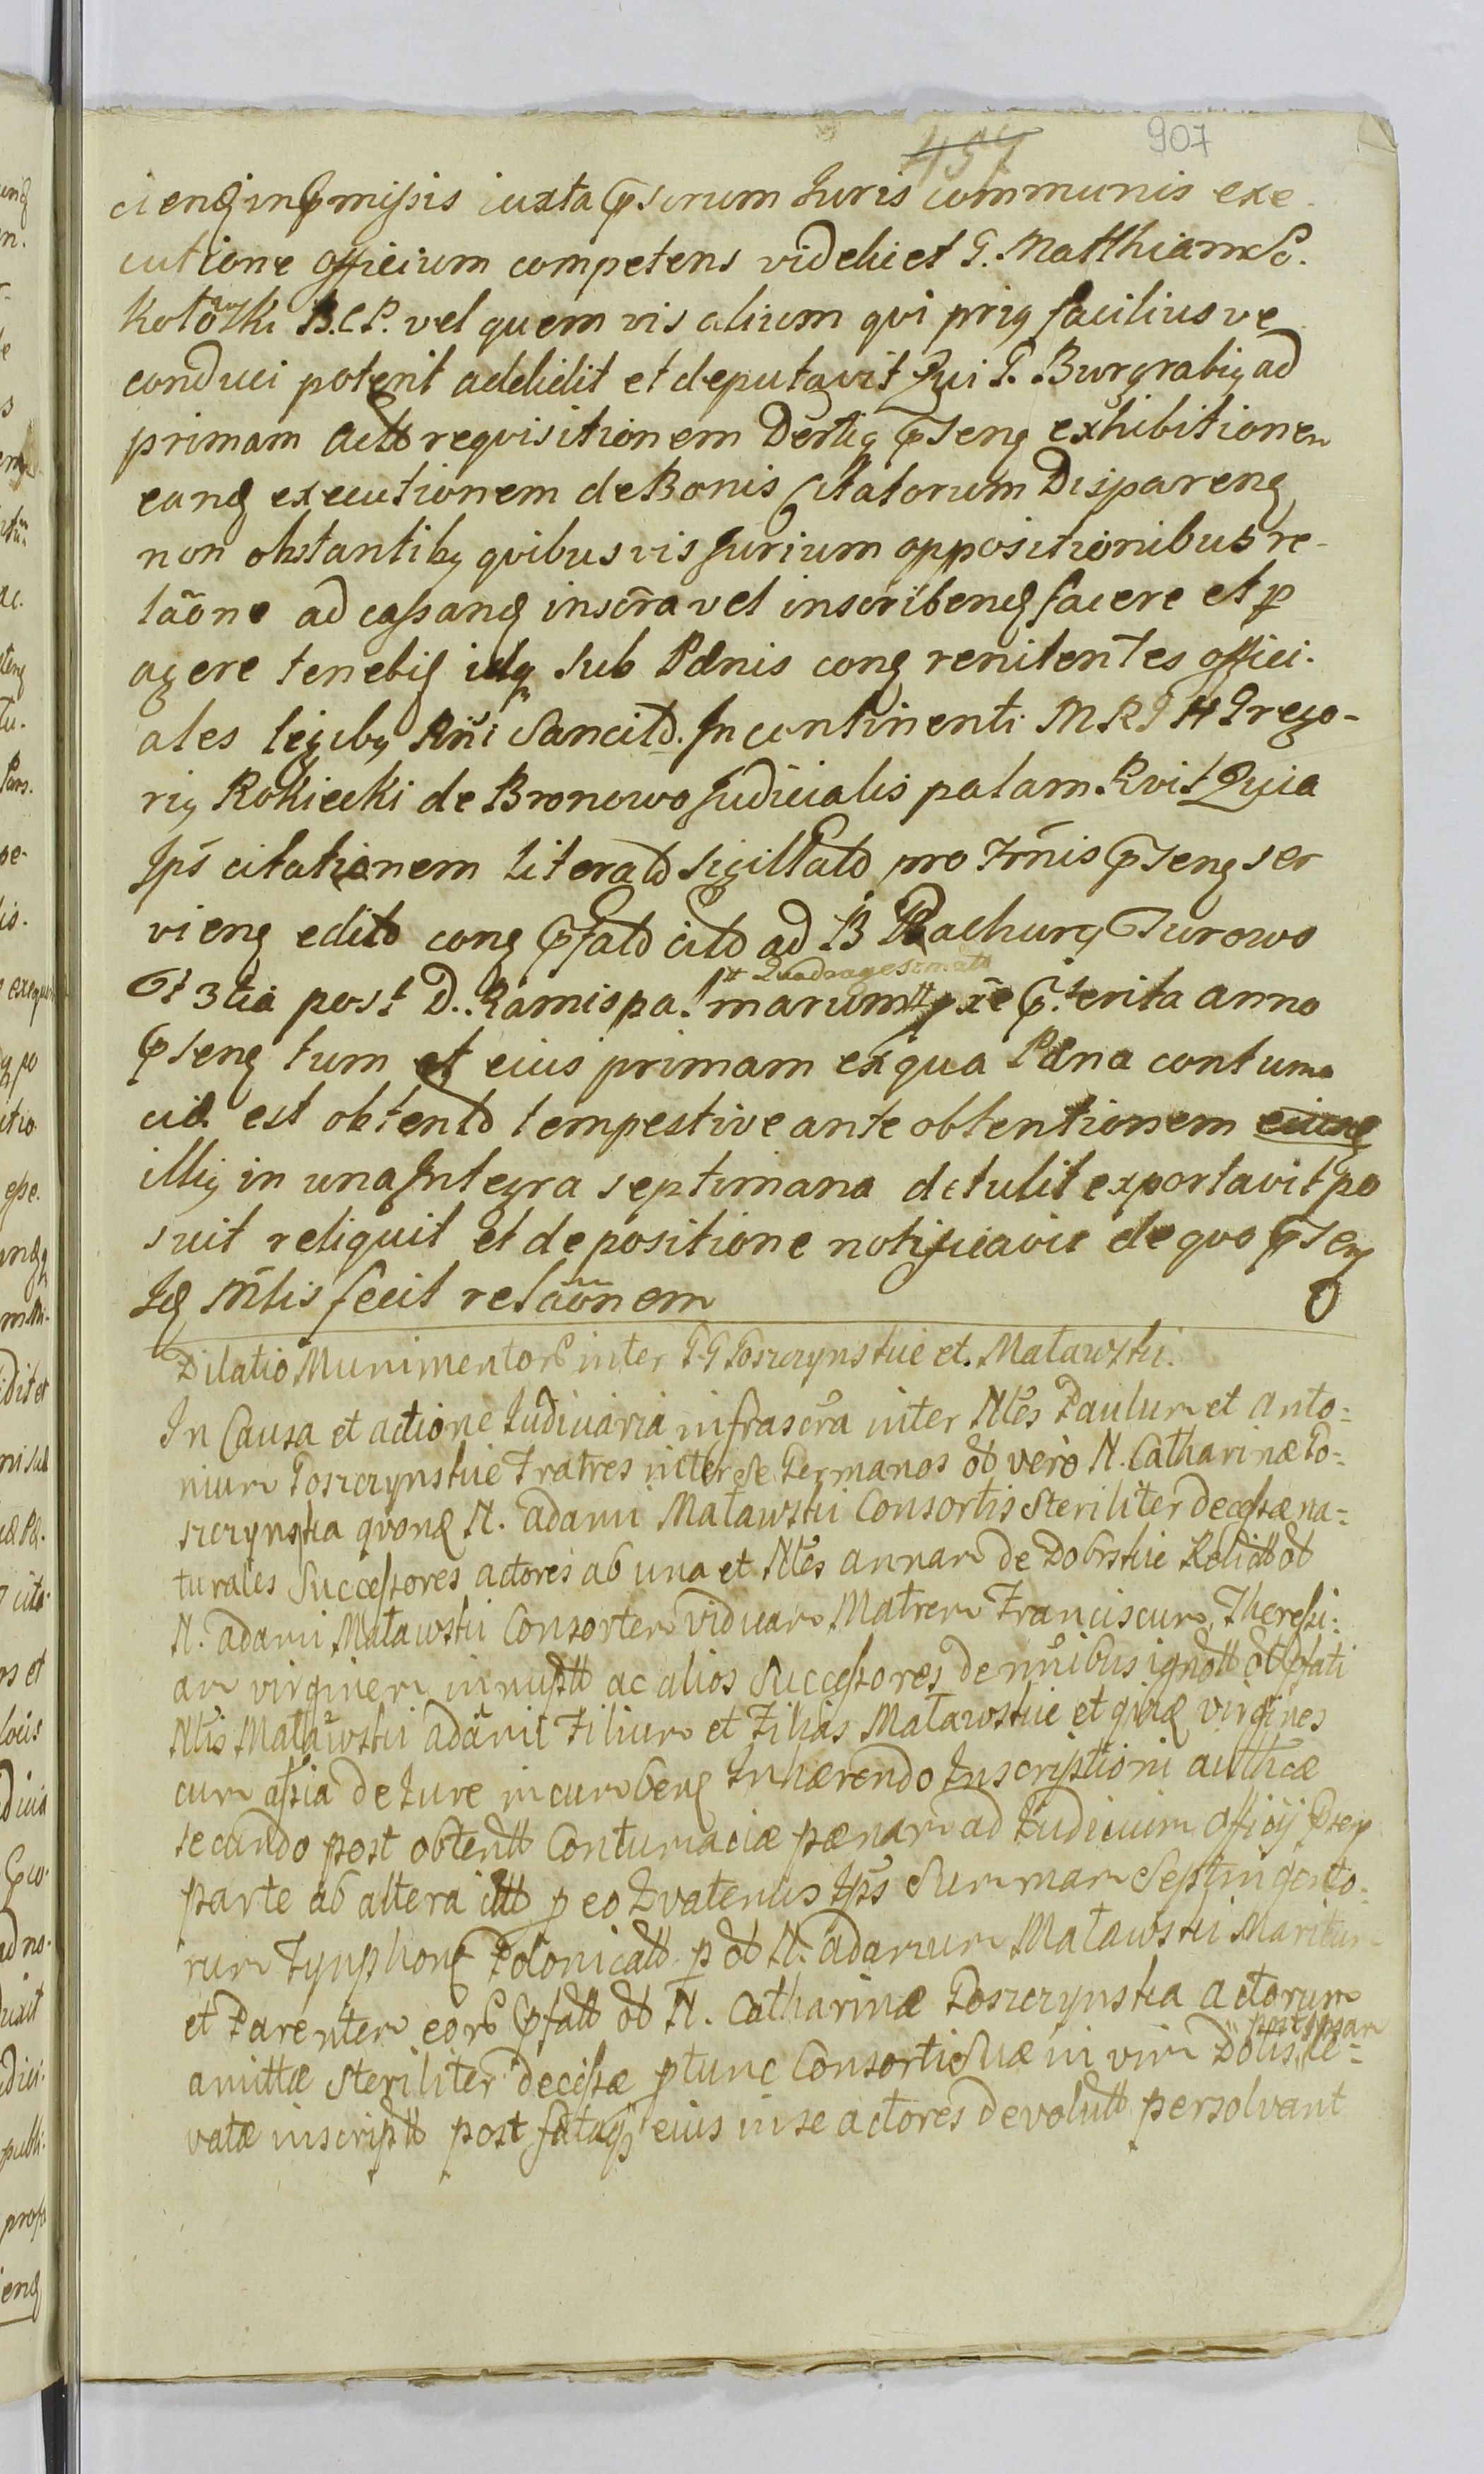 457 907
ciend in pmissis iuxta pscrum Juris communis exe-
cutione officium competens videlicet G. Matthiam S.
Kotowski B.C.P. vel quem vis alium qui prig facilius ve
conduci poterit addidit et deputavit Qui G. Burgrabig ad
primam requisitionem pseng exhibitionem
eand executionem de Bonis Citatorum Dispareng
non obstantibg quibusvis Jurium oppositionibus re-
lãone ad cassand inscra vel inscribend facere et p
agere tenebig idq sub Pænis cong renitentes offici-
ales legibg Rñi Sancitd. Incontinenti M R J H Grego-
rig Rokiecki de Bronowo Judicialis palam Rvit Quia
Jps citationem literatd Sigillatd pro Trmis pseng ser
vieng edito cong pfatd citd ad B Pachurg Turowo
3tia post D. Ramispalmarum Quadragesimale pxe pterita anno
pseng tum et eius primam ex qua Pæna contuma
ciæ est obtentd tempestive ante obtentionem
illig in una Integra septimana detulit exportavit po
suit reliquit et de positione notificavit de quo pseng
Jd Mtlis fecit relãonem
Dilatio Munimentor inter G G Poszczynskie et Matawski.
In Causa et actione Judiciaria infrascra inter Nles Paulum et Anto-
nium Poszczynskie Fratres inter se Germanos od vero N. Catharinæ Po-
szczynska quond N. Adami Matawski Consortis Steriliter decessæ na-
turales Successores actores ab una et Nles Annam de Dobrskie Relictt od
N. Adami Matawski Consortem viduam Matrem Franciscum, Theressi-
am virginem innuptt ac alios Successores de nnibus ignott od pfati
Nlis Matawski Adami Filium et Filias Matawskie et virgines
cum assia de Jure incumbend Inhærendo Inscriptioni authcæ
secundo post obtentt Contumaciæ pænam ad Judicium Officij pseng
parte ab altera citt p eo Quatenus Jps Summam Septingento-
rum Tynphond Polonicatt p od N. Adamum Matawski Maritum
et Parentem eor pfatt od N. Catharinæ Poszczynska Actorum
amittæ Steriliter decessæ ptunc Consorti Suæ in vim Dotis post ipsam le-
vatæ inscriptt post fataq eius in se actores devolutt persolvant